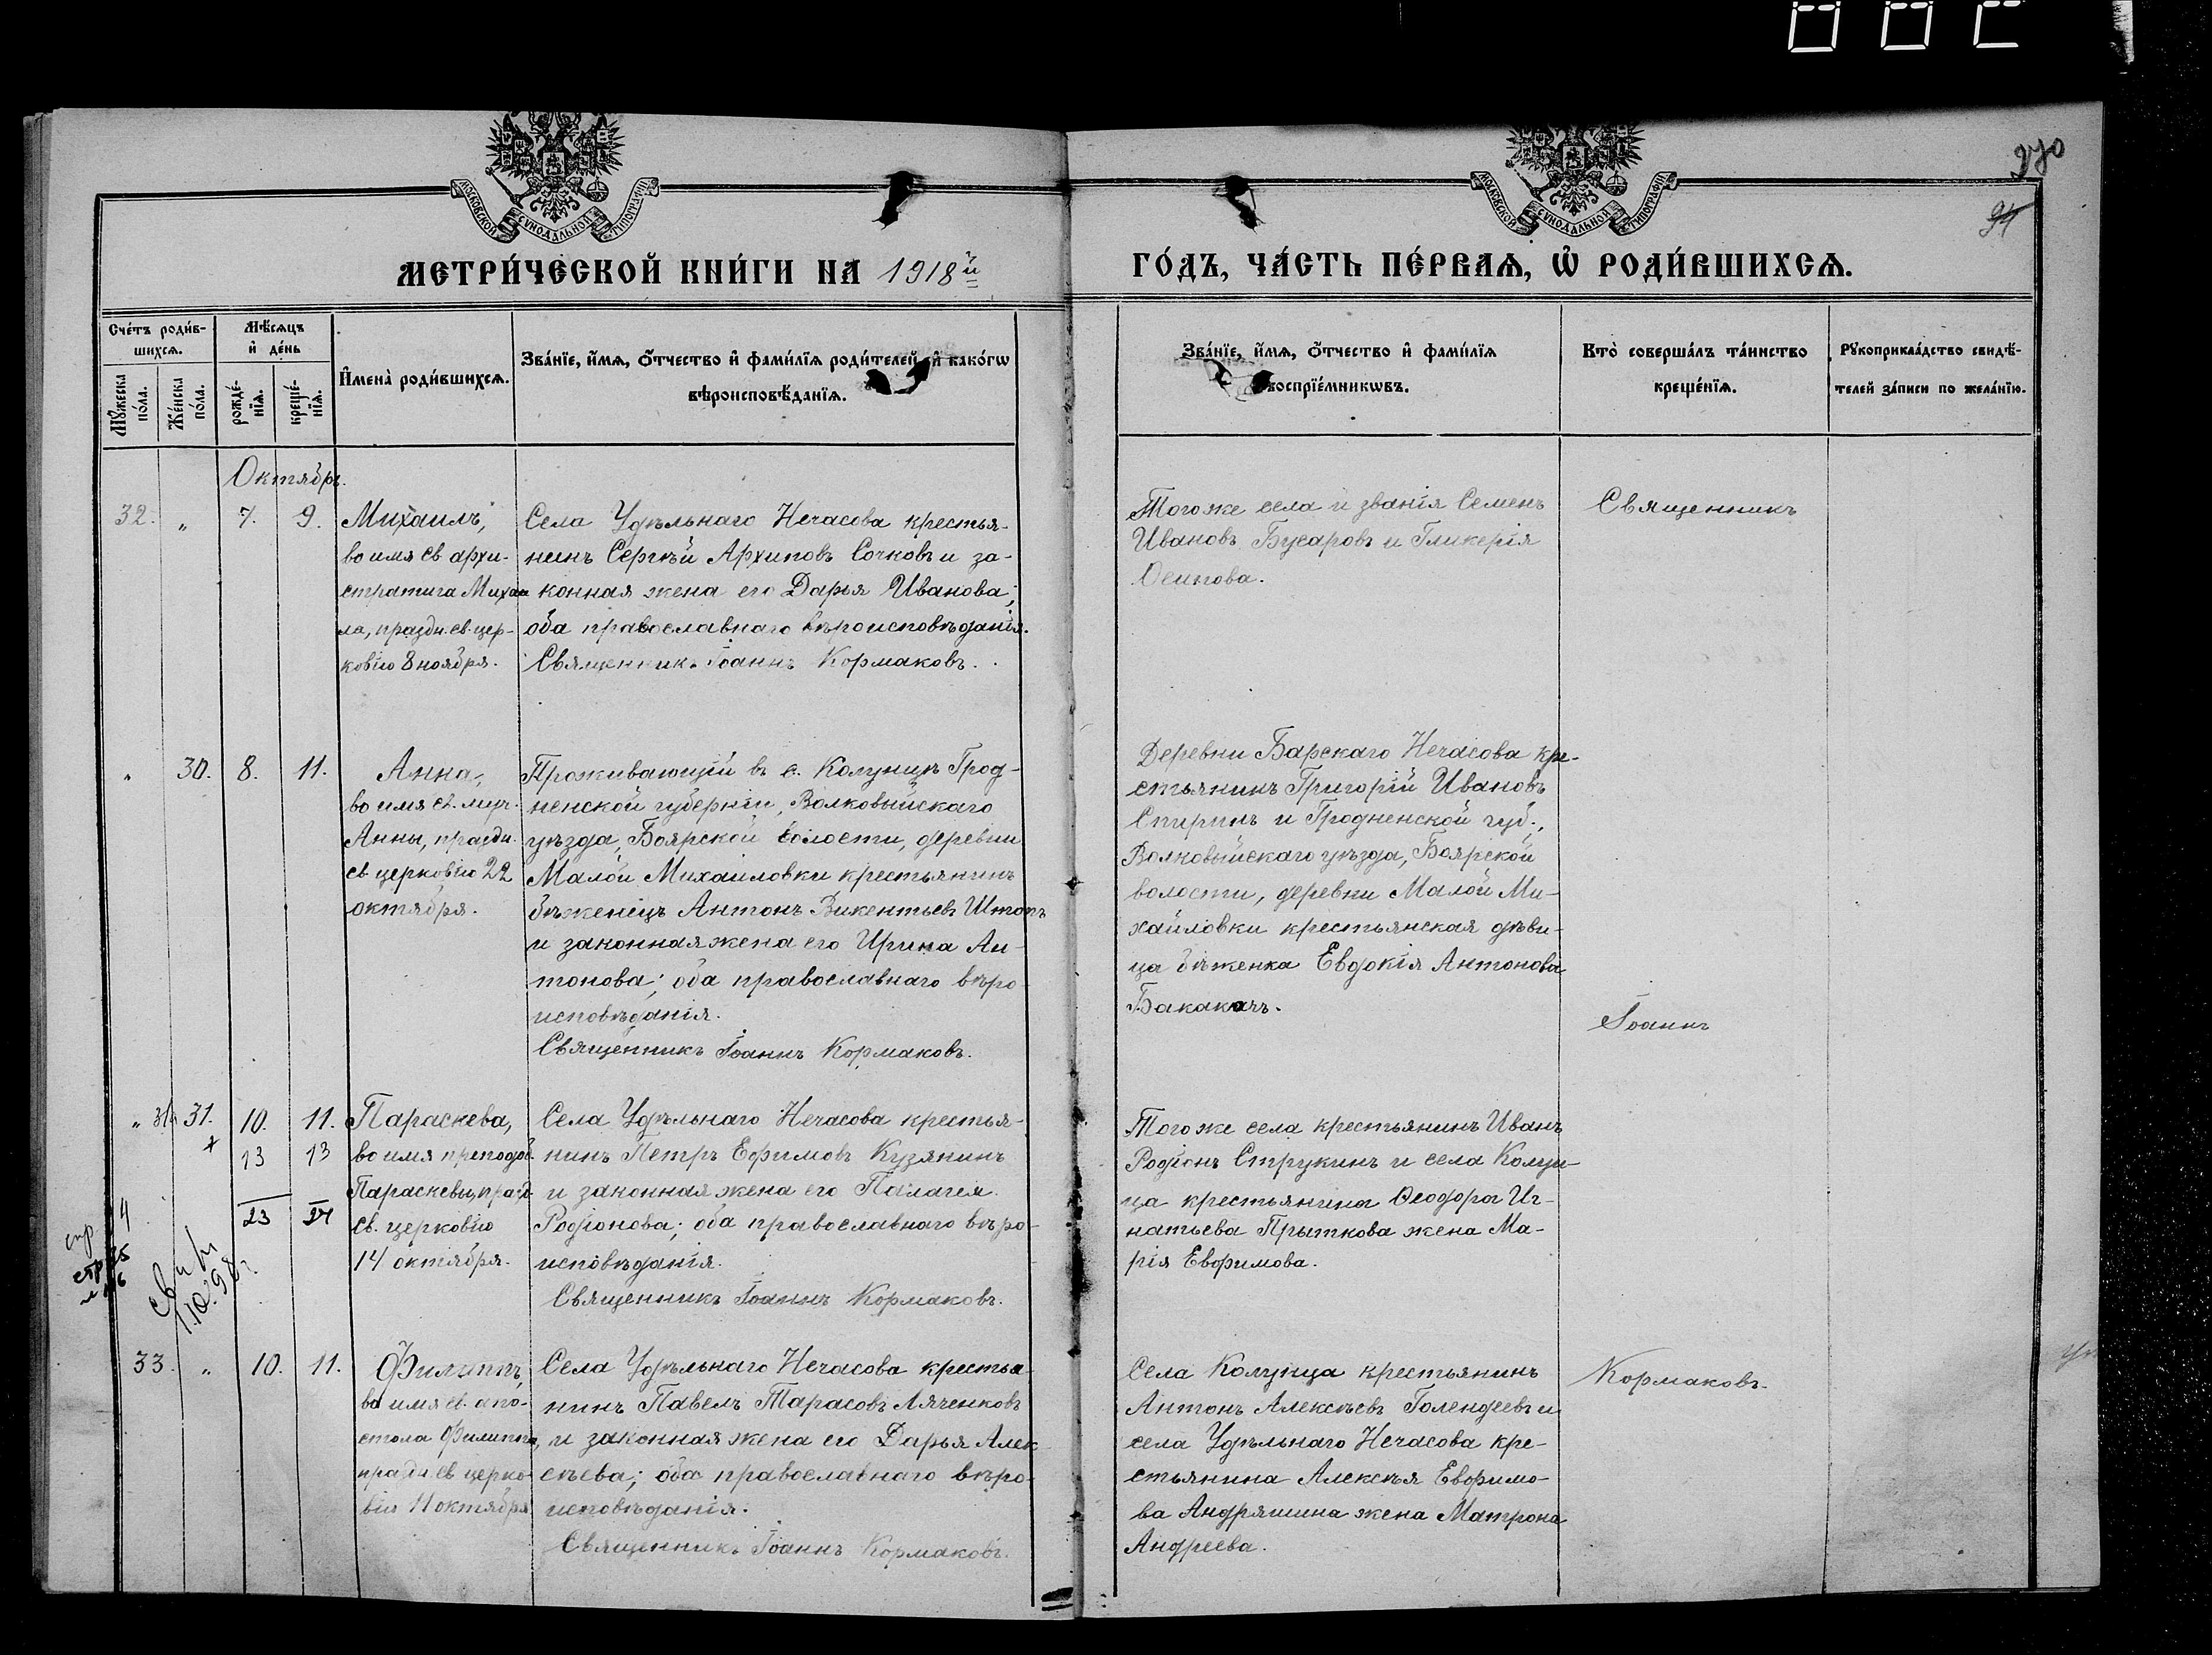 270
94
МОСКОВСКОЙ СУНОДАЛЬНОЙ ТИПОГРАФІИ
МОСКОВСКОЙ СУНОДАЛЬНОЙ ТИПОГРАФІИ
МЕТРИ́ЧЕСКОЙ КНИ́ГИ НА 1918й
ГО́ДЪ, ЧА́СТЬ ПЕ́РВАѦ, Ѡ҆ РОДИ́ВШИХСѦ.
Сче́тъ роди́в-
шихсѧ.
Мꙋ́жеска
по́ла.
Же́нска
по́ла.
Мѣ́сѧцъ
и҆ де́нь
рожде́-
нїѧ.
креще́-
нїѧ.
И҆мена̀ роди́вшихсѧ.
Зва́нїе, и҆́мѧ, о҆́тчество и҆ фами́лїѧ роди́телей, и҆ како́гѡ
вѣроисповѣ́данїѧ.
Зва́нїе, и҆́мѧ, о҆́тчество и҆ фами́лїѧ
воспрїе́мникѡвъ.
Кто̀ соверша́лъ та́инство
креще́нїѧ.
Рꙋкоприкла́дство свидѣ́-
телей за́писи по жела́нїю.
Октябрь.
32. " 7. 9.
Михаилъ,
во имя св. архи-
стратига Михаи
ла, праздн. св. цер-
ковію 8 ноября.
Села Удѣльнаго Нечасова крестья-
нинъ Сергѣй Архиповъ Сочковъ и за-
конная жена его Дарья Иванова;
оба православнаго вѣроисповѣданія.
Священникъ Іоаннъ Кормаковъ.
Того же села и званія Семенъ
Ивановъ Бусаровъ и Гликерія
Осипова.
Священникъ
" 30. 8. 11.
Анна,
во имя св. муч.
Анны, праздн.
св. церковію 22
октября.
Проживающій въ с. Колунцѣ Грод-
ненской губерніи, Волковыйскаго
уѣзда, Боярской волости, деревни
Малой Михаиловки крестьянинъ
бѣженецъ Антонъ Викентьевъ Штопъ
и законная жена его Ирина Ан-
тонова; оба православнаго вѣро
исповѣданія.
Священникъ Іоаннъ Кормаковъ.
Деревни Барскаго Нечасова кре-
стьянинъ Григорій Ивановъ
Спиринъ и Гродненской губ.,
Волковыйскаго уѣзда, Боярской
волости, деревни Малой Ми-
хайловки крестьянская дѣви-
ца бѣженка Евдокія Антонова
Бакакачъ.
Іоаннъ
" 31. 10. 11.
13 13
23 24
Параскева,
во имя преподоб.
Параскевы, празд.
св. церковію
14 октября.
Села Удѣльнаго Нечасова крестья-
нинъ Петръ Ефимовъ Кузянинъ
и законная жена его Палагея
Родіонова; оба православнаго вѣро-
исповѣданія.
Священникъ Іоаннъ Кормаковъ.
Того же села крестьянинъ Иванъ
Родіонъ Струкинъ и села Колун-
ца крестьянина Ѳеодора Иг-
натьева Прыткова жена Ма-
рія Евфимова.
33. " 10. 11.
Филиппъ,
во имя св. апо-
стола Филиппа,
праздн. св. церко-
вію 11 октября
Села Удѣльнаго Нечасова крестья-
нинъ Павелъ Тарасовъ Ляченковъ
и законная жена его Дарья Алек-
сѣева; оба православнаго вѣро-
исповѣданія.
Священникъ Іоаннъ Кормаковъ.
Села Колунца крестьянинъ
Антонъ Алексѣевъ Голендеевъ и
села Удѣльнаго Нечасова кре-
стьянина Алексѣя Евфимо-
ва Андряшина жена Матрона
Андреева.
Кормаковъ.